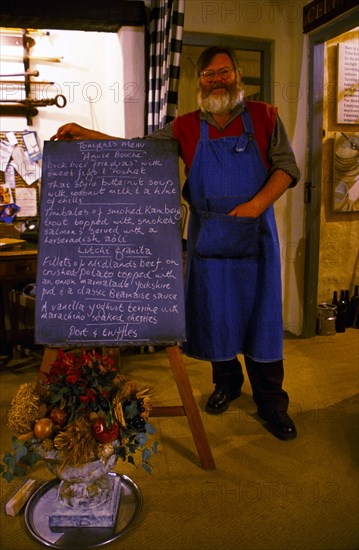 Tonight's Menu
"Amuse Bouche"
Duck liver "medias" with
sweet figs & rocket
Thai style butternut soup
with coconut milk & a hint
of chilli
Timbales of smoked Kamberg
trout topped with smoked
salmon & served with a
horseradish aoli
Litchi granita
Fillets of Midlands beef on
crushed potato topped with
an onion marmalade Yorkshire
pud & a classic Bearnaise sauce
A vanilla yoghurt terrine with
maraschino soaked cherries
Port & truffles